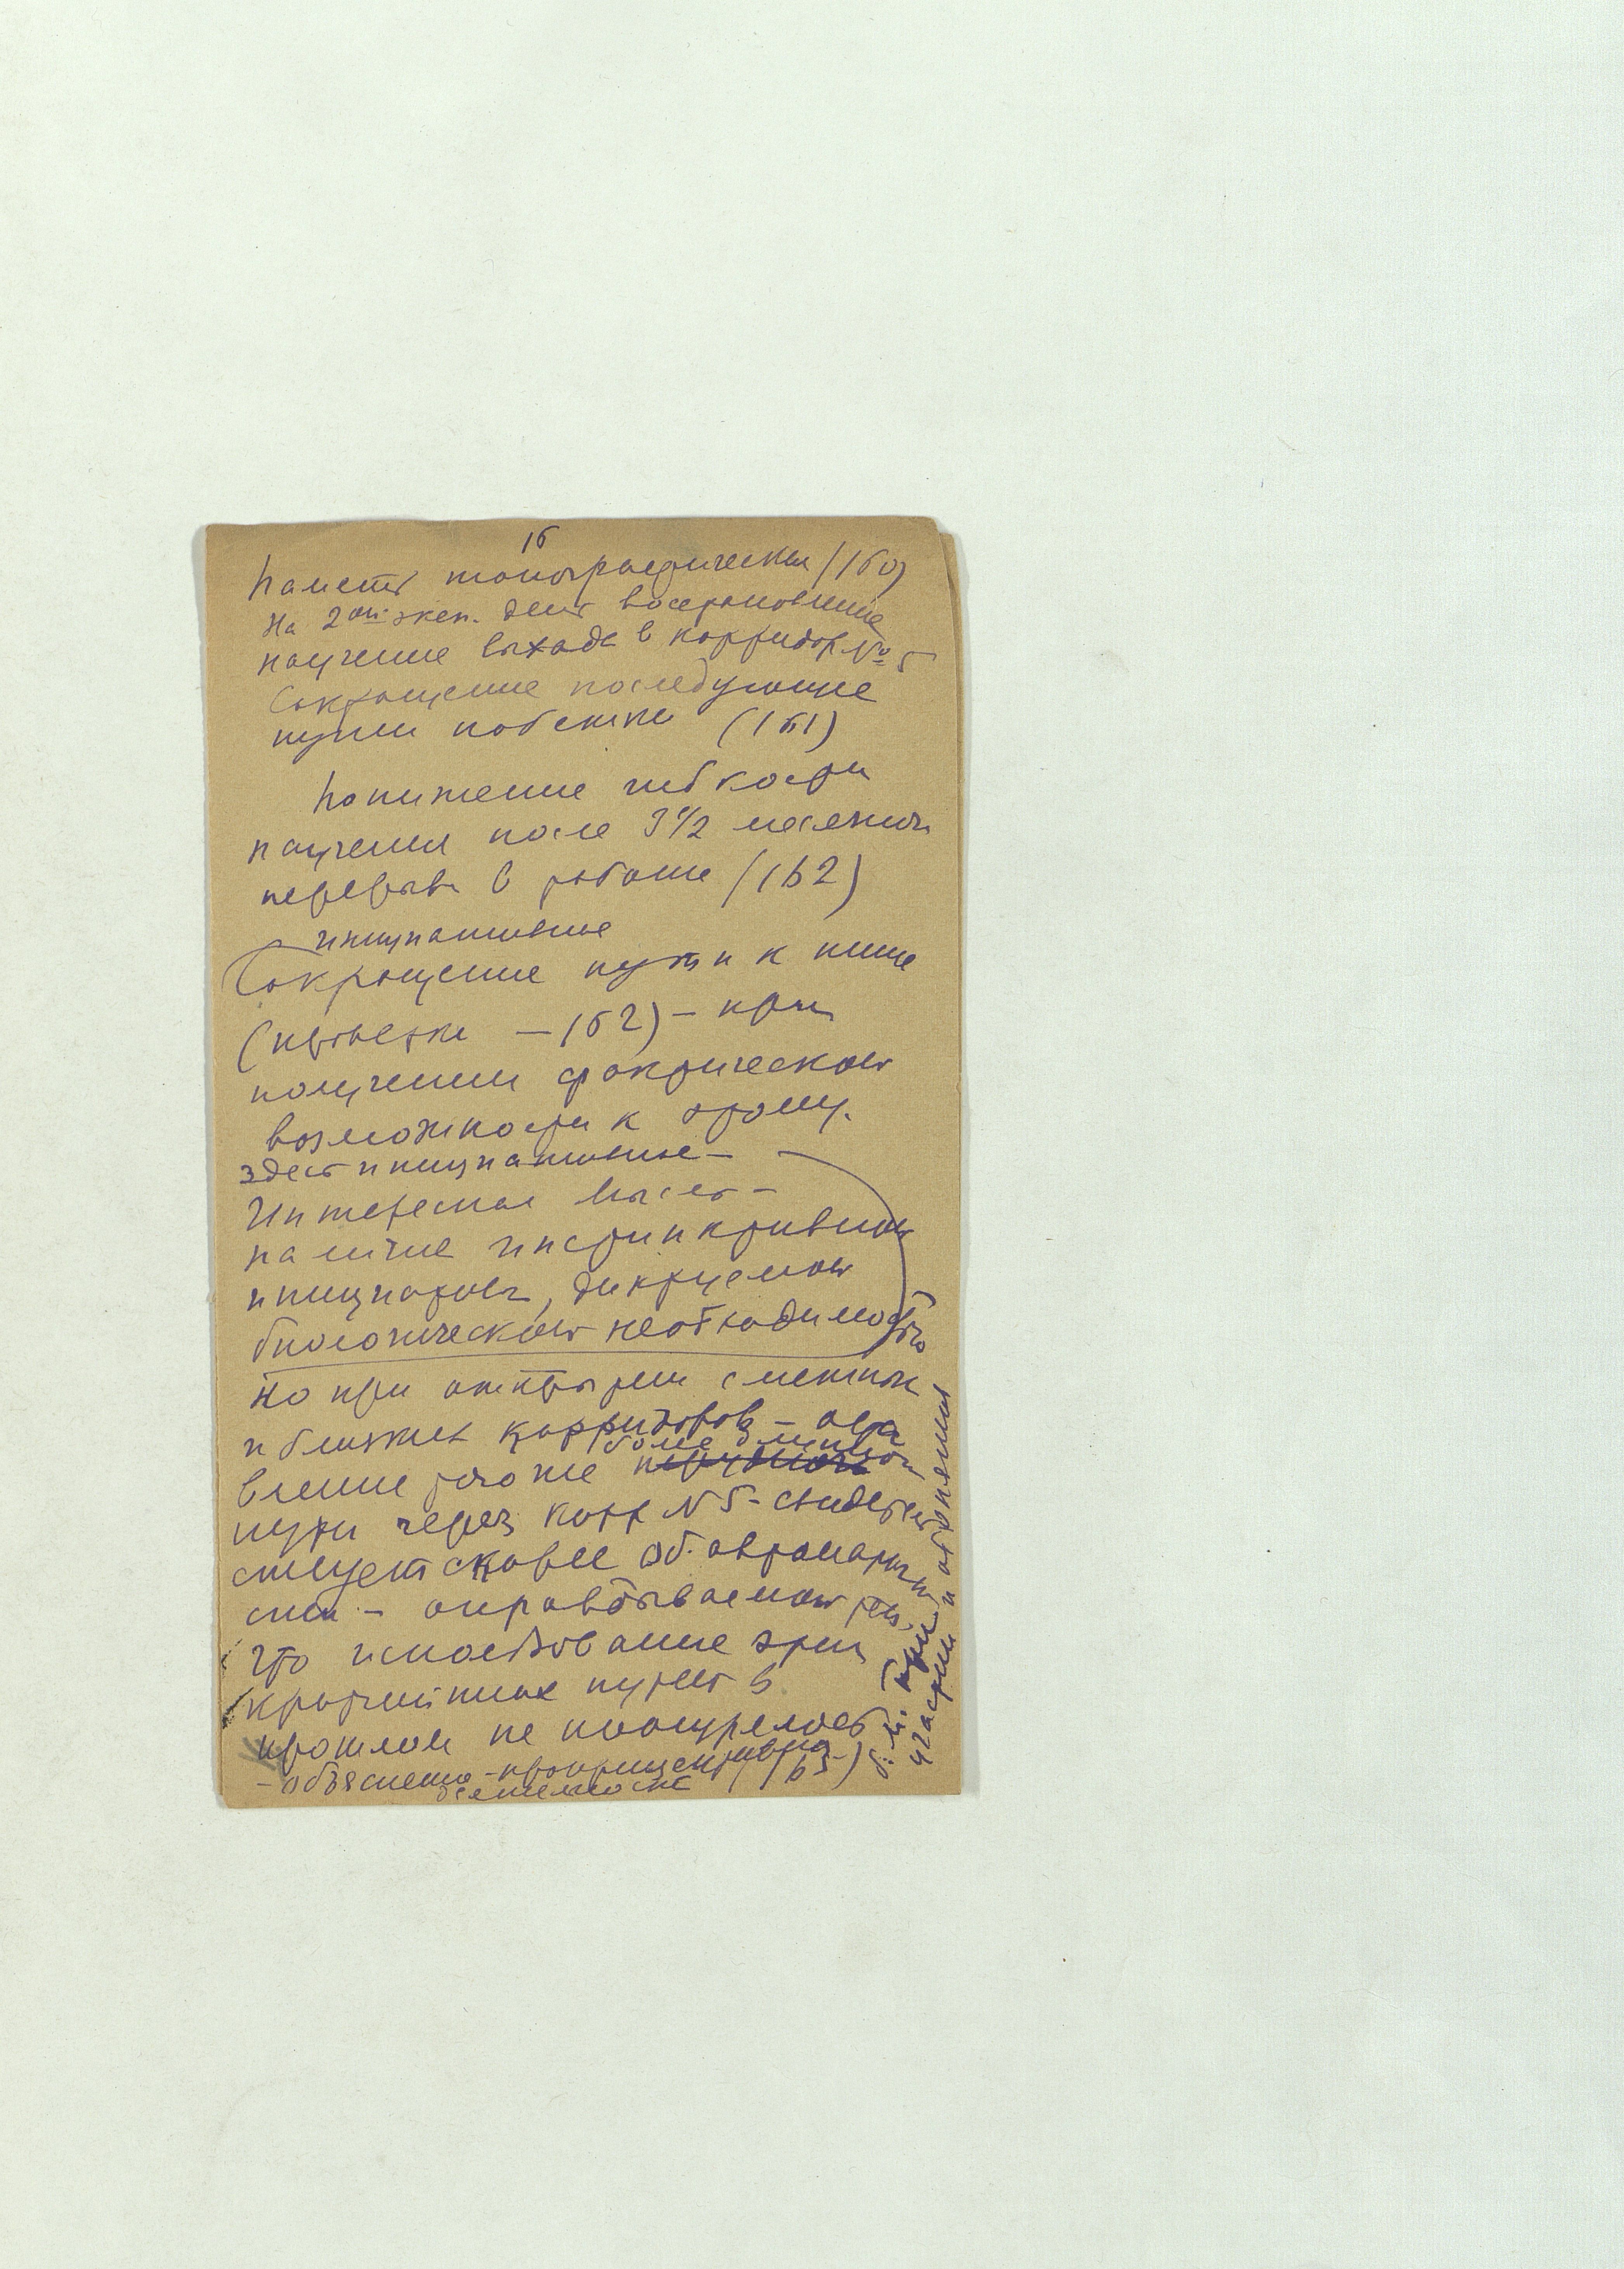 16
Память топографическая (160)
На 2ой эксп. день восстановление
научение выхода в корридор № 5
Сокращение последующие
пути побежки (161)
Понижение гибкости
научения после 3 1/2 месячного
перерыва в работе (162)
инициативное
Сокращение пути к нише
(проверки — 162) — при
получении фактической
возможности к этому.
здесь инициативные —
Интересная мысль —
наличие инстинктивной
инициативы, диктуемой
биологической необходимостью
Но при открытии смежных
и близких корридоров — остa
более длинного
вление того же
пути через корр N 5 — свидетель
ствует скорее об автоматично
сти — оправдываемой тем,
что использование этих
кратчайших путей в
прошлом не поощрялось
— объяснено — проприоцептивная (163)
деятельность
б. м. при
участии и обоняния